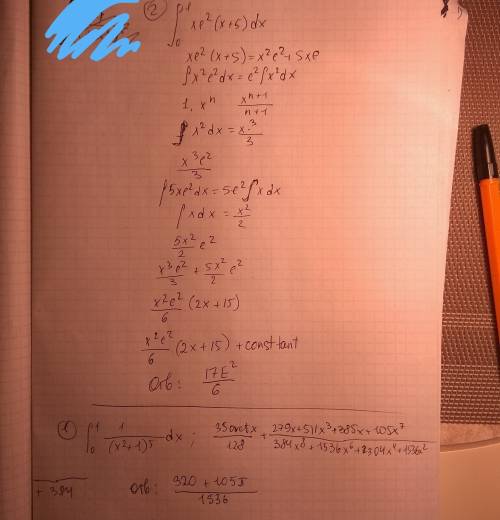 ② ∫₀¹ xe²(x+5)dx
xe²(x+5)=x²e²+5xe
∫x²e²dx=e²∫x²dx
1. xⁿ xⁿ⁺¹/n+1
∫x²dx=x³/3
x³e²/3
∫5xe²dx=5e²∫xdx
∫xdx=x²/2
5x²/2 e²
x³e²/3+5x²/2 e²
x²e²/6 (2x+15)
x²e²/6 (2x+15)+constant
Отв: 17E²/6
① ∫₀¹ 1/(x²+1)⁵ dx; 35arctx/128 + 279x+511x³+385x+105x⁷/384x⁸+1536x⁶+2304x⁴+1536x²
+384
Отв: 320+105π/1536